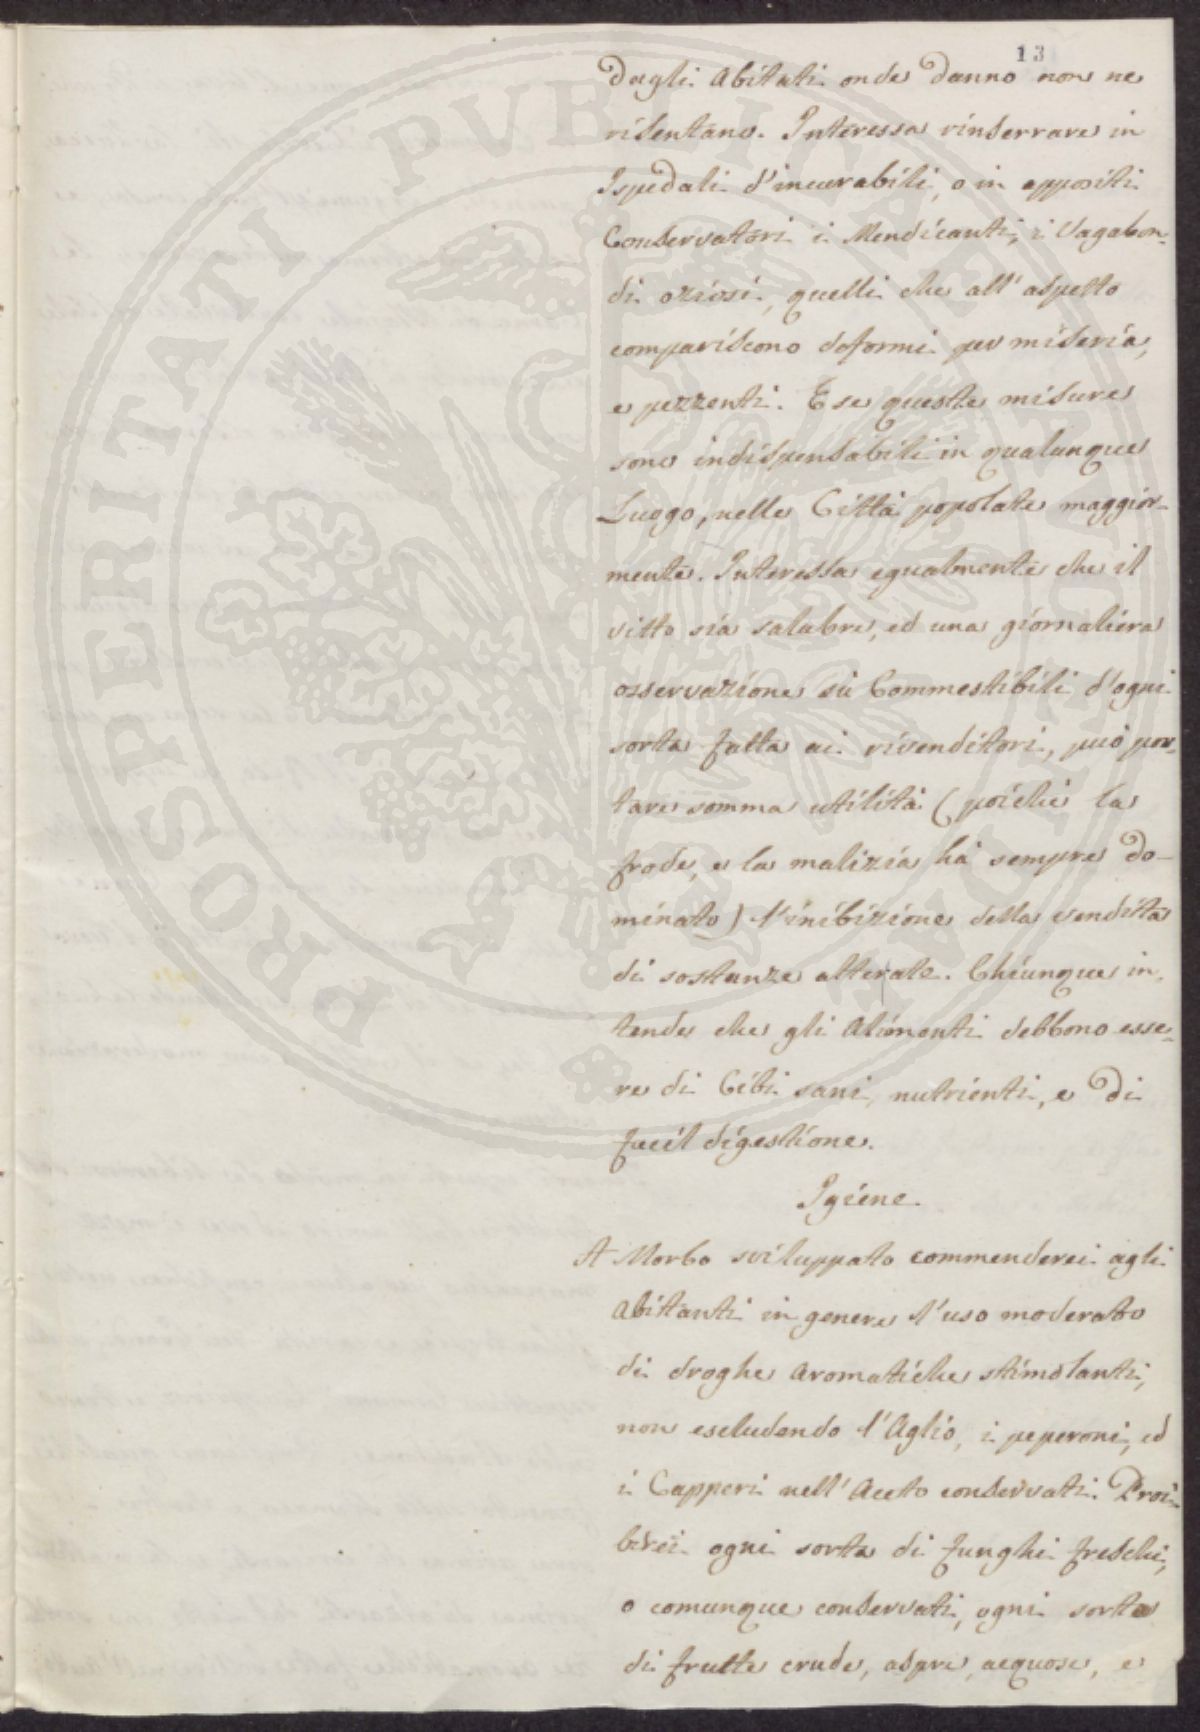 13
dagli Abitati onde danno non ne
risentano. Interessa rinserrare in
Ispedali d'incurabili, o in appositi
Conservatori i Mendicanti, i Vagabon-
di oziosi, quelli che all'aspetto
compariscono deformi per miseria,
e pezzenti. E se queste misure
sono indispensabili in qualunque
Luogo, nelle Città popolate maggior-
mente. Interessa egualmente che il
vitto sia salubre, ed una giornaliera
osservazione sù Commestibili d'ogni
sorta fatta ai rivenditori, può por-
tare somma utilità (poichè la
frode, e la malizia hà sempre do-
minato) l'inibizione della vendita
di sostanze alterate. Chiunque in-
tende che gli Alimenti debbono esse-
re di Cibi sani, nutrienti, e di
facil digestione.
Igiene.
A Morbo sviluppato commenderei agli
Abitanti in genere l'uso moderato
di droghe Aromatiche stimolanti,
non escludendo l'Aglio, i peperoni, ed
i Capperi nell'Aceto conservati. Proi-
birei ogni sorta di funghi freschi,
o comunque conservati, ogni sorta
di frutte crude, aspre, acquose, e
PROSPERITATI PUBLICAE